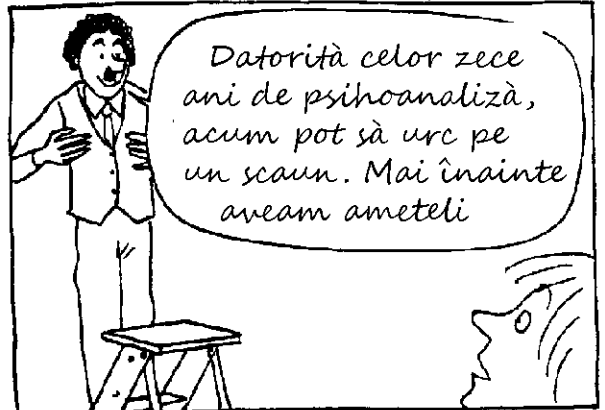 Datorità celor zece
ani de psihoanalizà,
acum pot sà urc pe
un scaun. Mai înainte
aveam ameteli